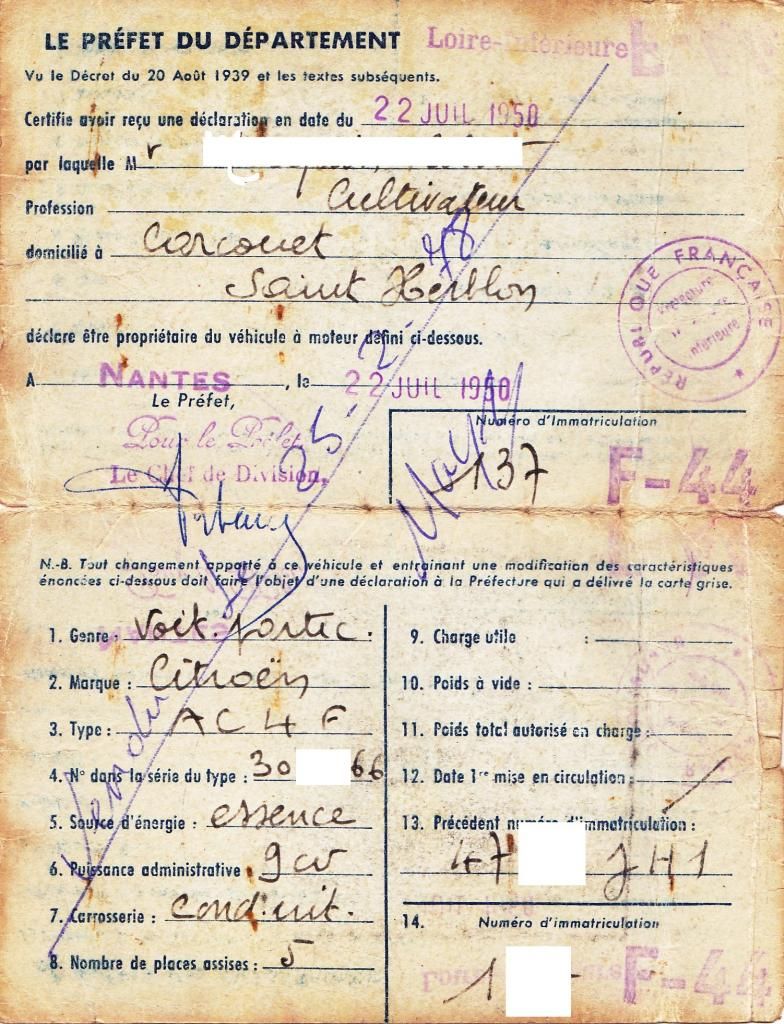 LE PRÉFET DU DÉPARTEMENT Loire-Inférieure
Vu le Décret du 20 Août 1939 et les textes subséquents.
Certifie avoir reçu une déclaration en date du 22 JUIL 1950
par laquelle Mr
Profession Cultivateur
domicilié à Carcouet
Saint Herblon
déclare être propriétaire du véhicule à moteur défini ci-dessous.
A NANTES, le 22 JUIL 1950
Le Préfet,
Pour le Préfet
Le Chef de Division,
REPUBLIQUE FRANÇAISE
Préfecture
Inférieure
Numéro d'Immatriculation
137 F-44
N.-B. Tout changement apporté à ce véhicule et entraînant une modification des caractéristiques
énoncées ci-dessous doit faire l'objet d'une déclaration à la Préfecture qui a délivré la carte grise.
1. Genre : Voit. partic.
2. Marque : Citroën
3. Type : AC4F
4. N° dans la série du type : 30 66
5. Source d'énergie : essence
6. Puissance administrative : 9 cv
7. Carrosserie : cond. int.
8. Nombre de places assises : 5
9. Charge utile :
10. Poids à vide :
11. Poids total autorisé en charge :
12. Date 1re mise en circulation :
13. Précédent numéro d'immatriculation :
47 JH1
14. Numéro d'immatriculation
1 F-44
Vendu le 25-2-